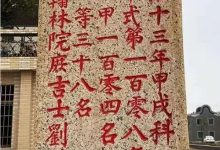 十三年甲戌科
式第一百零八
甲一百零四名
等三十八名
翰林院庶吉士劉